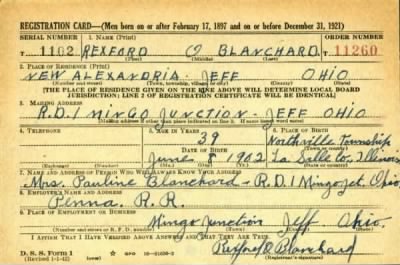 REGISTRATION CARD—(Men born on or after February 17, 1897 and on or before December 31, 1921)
SERIAL NUMBER 1. NAME (Print) ORDER NUMBER
T 1102 REXFORD O BLANCHARD T 11260
(First) (Middle) (Last)
2. PLACE OF RESIDENCE (Print)
NEW ALEXANDRIA JEFF OHIO
(Number and street) (Town, township, village, or city) (County) (State)
[THE PLACE OF RESIDENCE GIVEN ON THE LINE ABOVE WILL DETERMINE LOCAL BOARD
JURISDICTION; LINE 2 OF REGISTRATION CERTIFICATE WILL BE IDENTICAL]
3. MAILING ADDRESS
R.D.1 MINGO JUNCTION - JEFF OHIO
[Mailing address if other than place indicated on line 2. If same insert word same]
4. TELEPHONE 5. AGE IN YEARS 6. PLACE OF BIRTH
39 Northville Township
DATE OF BIRTH (Town or county)
June 8 1902 La Salle Co, Illinois
(Exchange) (Number) (Mo.) (Day) (Yr.) (State or country)
7. NAME AND ADDRESS OF PERSON WHO WILL ALWAYS KNOW YOUR ADDRESS
Mrs. Pauline Blanchard - R.D.1 Mingo Jct. Ohio
8. EMPLOYER'S NAME AND ADDRESS
Penna. R.R.
9. PLACE OF EMPLOYMENT OR BUSINESS
Mingo Junction Jeff Ohio
(Number and street or R. F. D. number) (Town) (County) (State)
I AFFIRM THAT I HAVE VERIFIED ABOVE ANSWERS AND THAT THEY ARE TRUE.
D. S. S. Form 1
(Revised 1-1-42) GPO 16-21630-2 Rexford O Blanchard
(Registrant's signature)